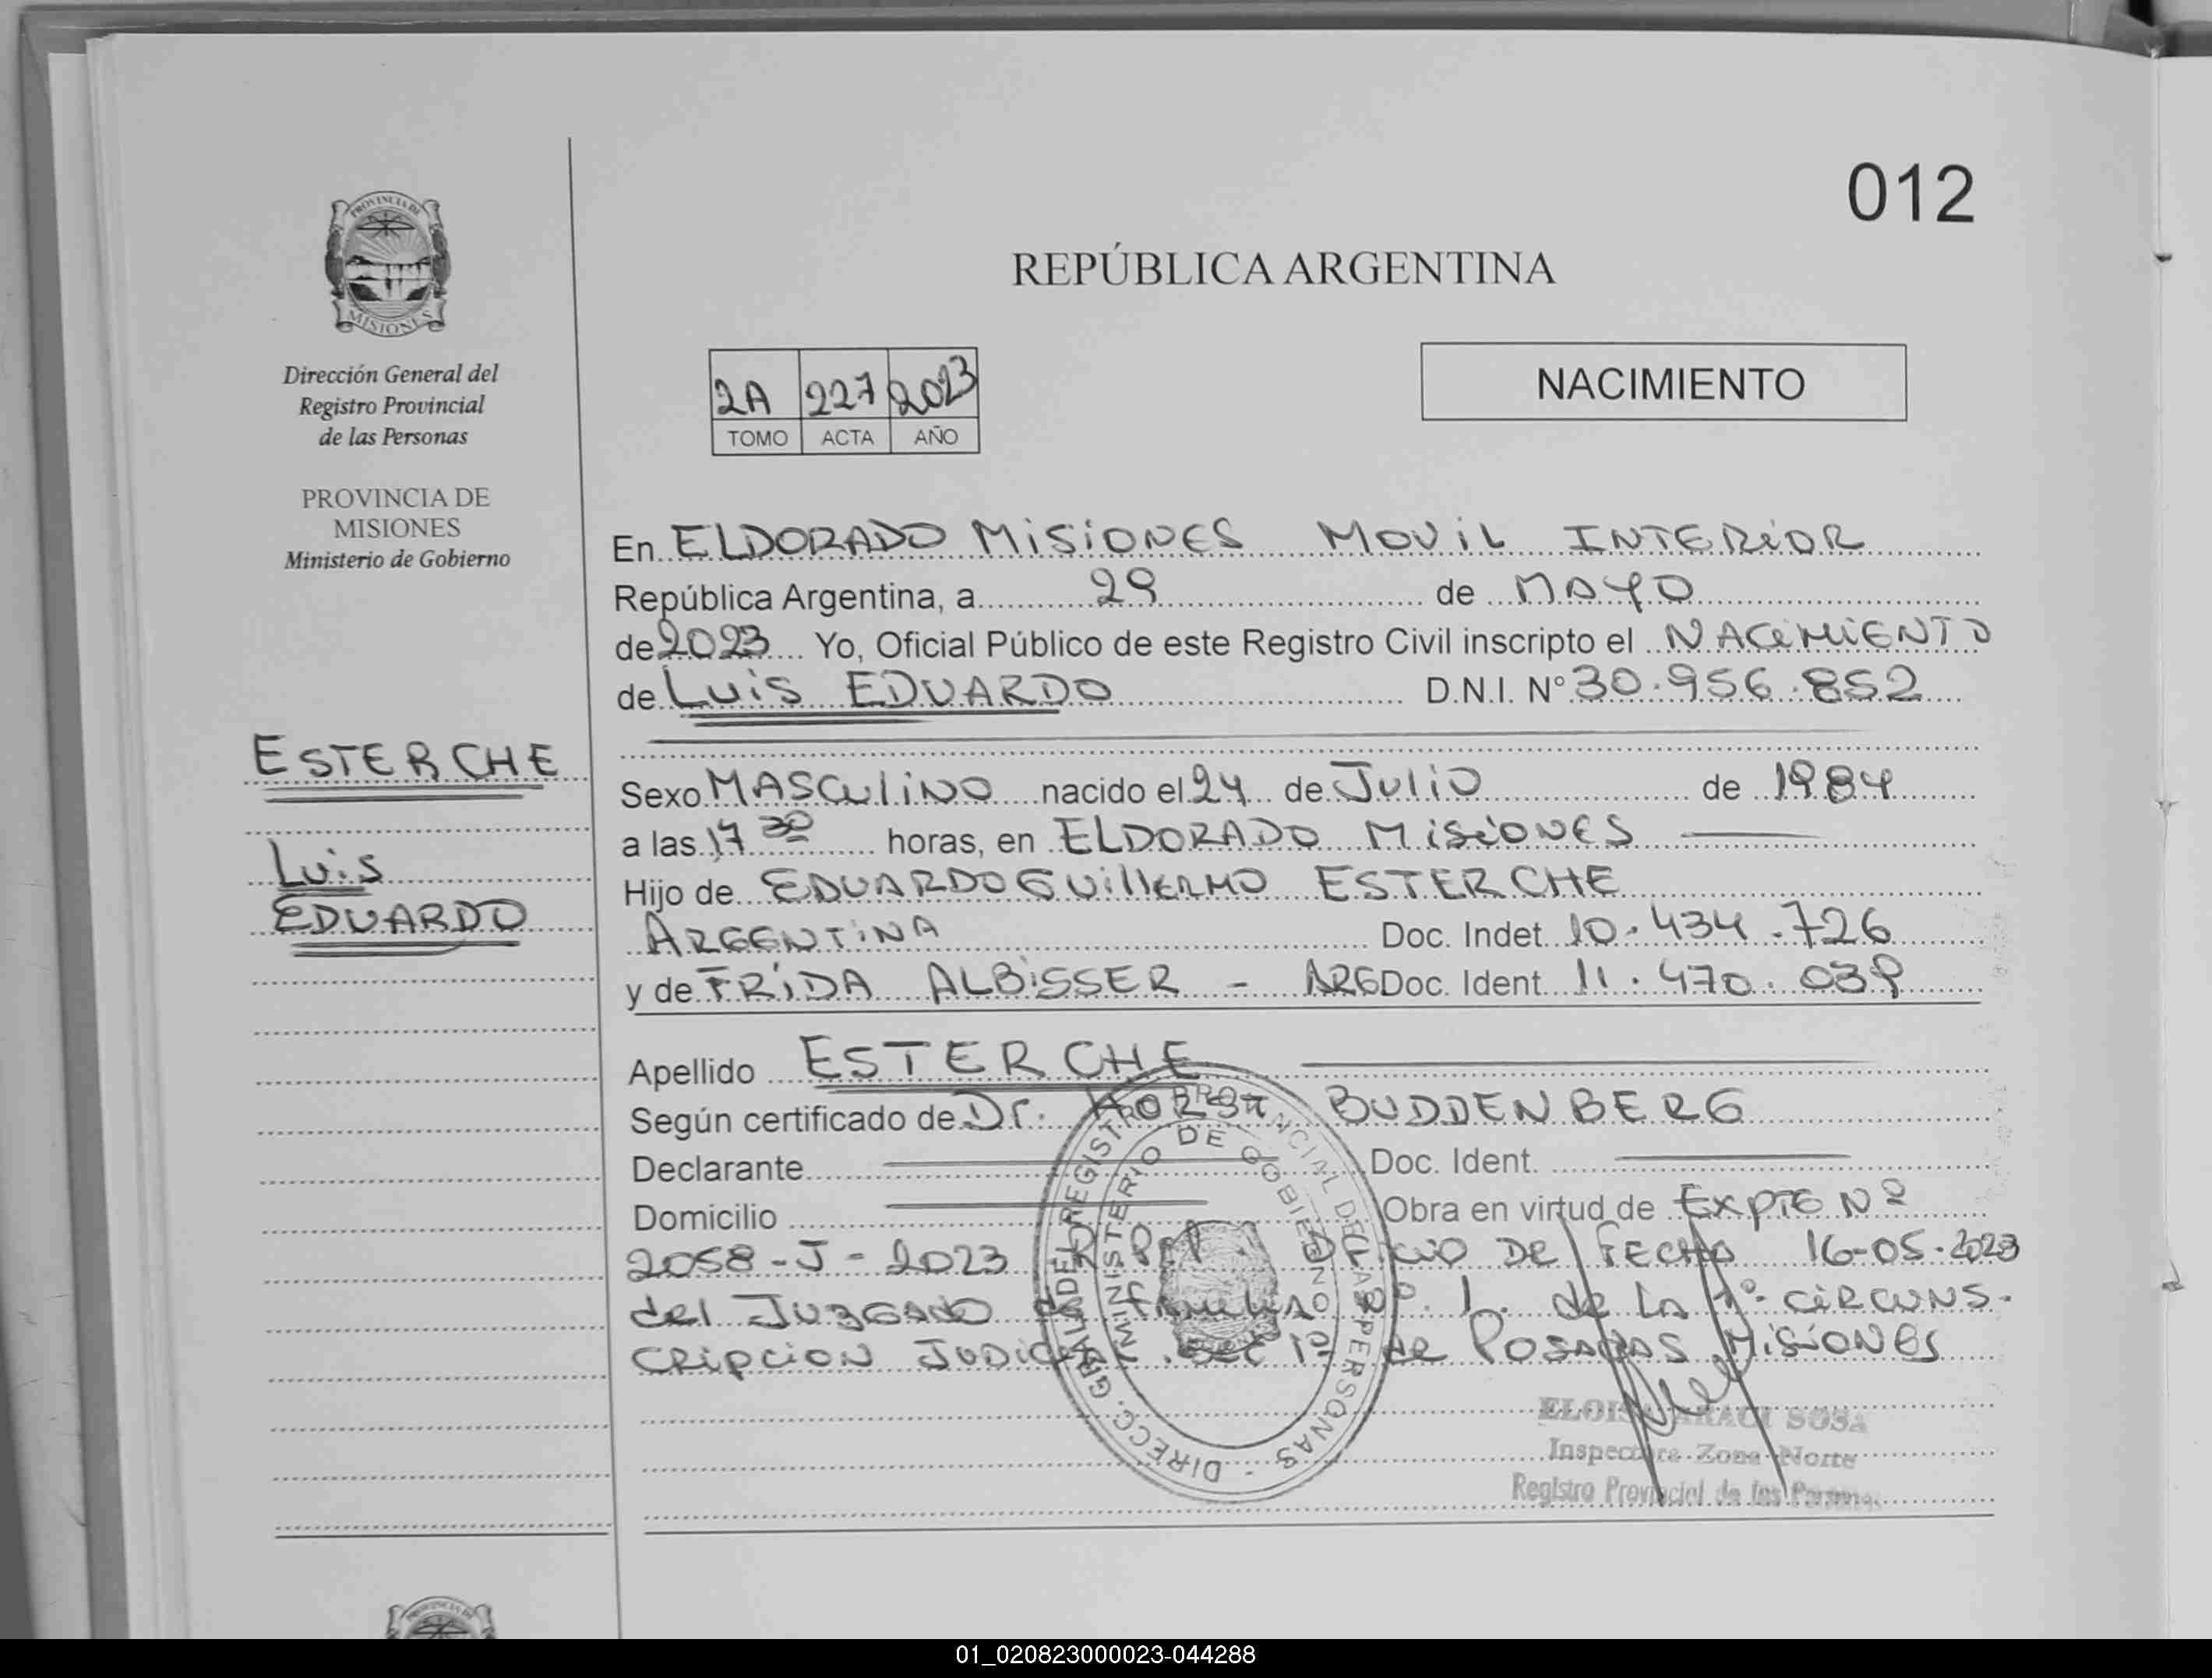 012
PROVINCIA DE
MISIONES
REPÚBLICA ARGENTINA
Dirección General del
Registro Provincial
de las Personas
PROVINCIA DE
MISIONES
Ministerio de Gobierno
2A 227 2023
TOMO ACTA AÑO
NACIMIENTO
En ELDORADO MISIONES MOVIL INTERIOR
República Argentina, a 29 de MAYO
de 2023 Yo, Oficial Público de este Registro Civil inscripto el NACIMIENTO
de LUIS EDUARDO D.N.I. N° 30.956.852
ESTERCHE
LUIS
EDUARDO
Sexo MASCULINO nacido el 24 de JULIO de 1984
a las 17 30 horas, en ELDORADO MISIONES
Hijo de EDUARDO GUILLERMO ESTERCHE
ARGENTINA Doc. Indet. 10.434.726
y de FRIDA ALBISSER - ARG Doc. Ident. 11.470.039
Apellido ESTERCHE
Según certificado de Dr. HORST BUDDENBERG
Declarante Doc. Ident.
Domicilio Obra en virtud de EXPTE Nº
2058-J-2023 OFICIO DE FECHA 16-05-2023
del JUZGADO de FAMILIA Nº 1 de LA 1º CIRCUNS-
CRIPCION JUDICIAL Sec 1º de POSADAS MISIONES
DIRECC. GRAL. DEL REGISTRO PROVINCIAL DE LAS PERSONAS -
MINISTERIO DE GOBIERNO
ELOISA ARACI SOSA
Inspectora Zona Norte
Registro Provincial de las Personas
01_020823000023-044288